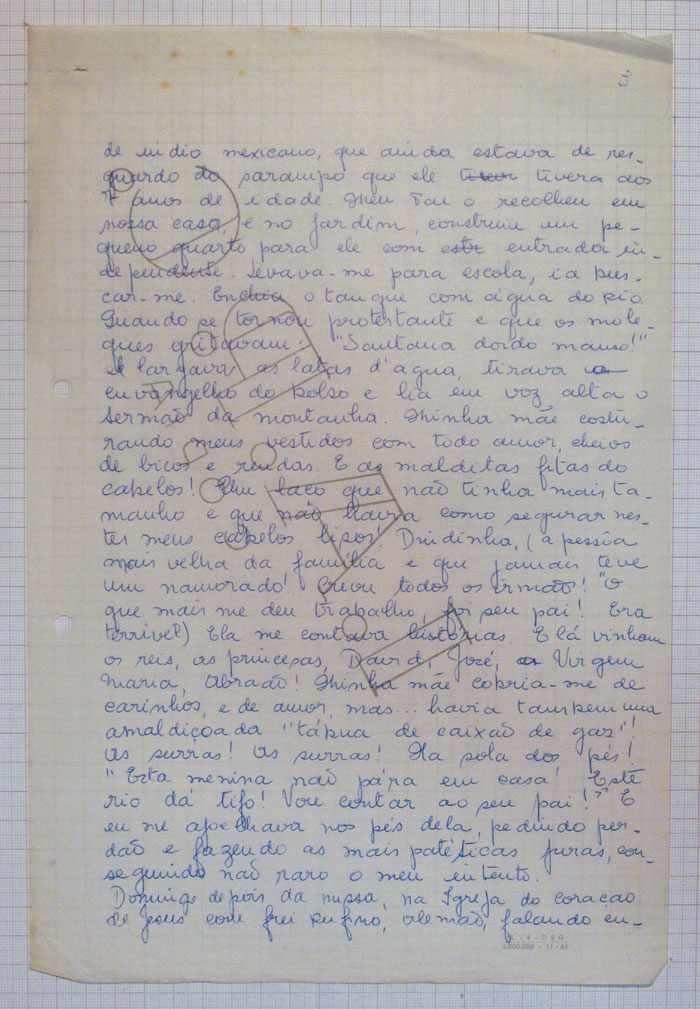 3
de indio mexicano, que ainda estava de res-
guardo do sarampo que ele tivera aos
7 anos de idade. Meu Pai o recolheu em
nossa casa, e no jardim, construiu um pe-
queno quarto para ele com entrada in-
dependente. Levava-me para escola, ia bus-
car-me. Enchia o tanque com água do rio.
Quando se tornou protestante e que os mole-
ques gritavam: "Santana doido manso!"
A largava as latas d'agua, tirava o
envangelho do bolso e lia em voz alta o
sermão da montanha. Minha mãe costu-
rando meus vestidos com todo amor, cheios
de bicos e rendas. E as malditas fitas do
cabelos! Um laço que não tinha mais ta-
manho e que não havia como segurar nes-
tes meus cabelos lisos! Dindinha, (a pessôa
mais velha da família e que jamais teve
um namorado! Criou todos os irmãos! "O
que mais me deu trabalho, foi seu pai! Era
terrivel) Ela me contava histórias. E lá vinham
os reis, as princesas, David, José, a Virgem
Maria, Abraão! Minha mãe cobria-me de
carinhos, e de amor, mas... havia tambem uma
amaldiçoada "tábua de caixão de gaz"!
As surras! As surras! Na sola dos pés!
"Esta menina não pára em casa! Este
rio dá tifo! Vou contar ao seu pai!" E
eu me ajoelhava nos pés dela, pedindo per-
dão e fazendo as mais patéticas juras, con-
seguindo não raro o meu intento.
Domingo depois da missa, na Igreja do coração
de Jesus com frei Rufino, alemão, falando en-
4 - DSG
2.000.000 - 11-61